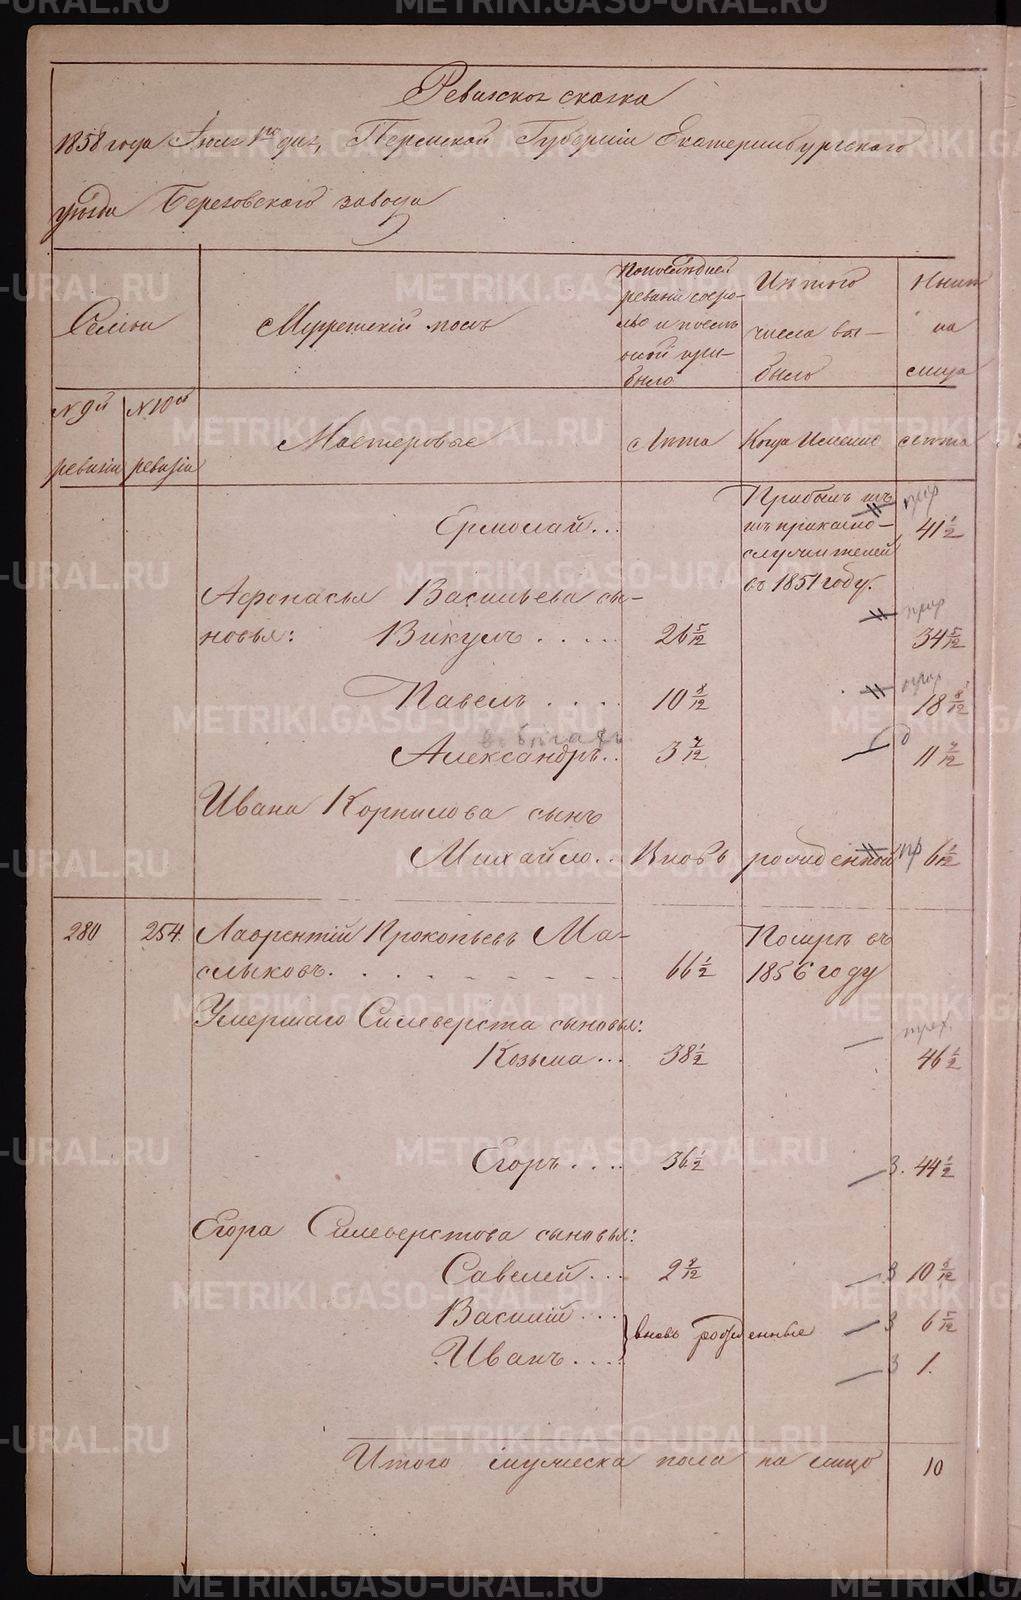 Ревизская сказка
1858 года Iюня 1го дня, Пермской Губернiи Екатеринбургскаго
уѣзда Березовскаго завода
Семьи
Мужескiй полъ
По последней ревизiи состояло и после оной прибыло
Изъ того числа выбыло
Нынѣ на лицо
№ 9й ревизiи
№ 10й ревизiи
Мастеровые
Лѣта
Когда Именно
лѣта
Ермолай...
Прибылъ изъ
приказно-
служителей
въ 1851 году.
41 1/2
Афонасья Васильева сы-
новья: Викулъ . . . .
26 5/12
34 5/12
Павелъ . . . .
10 8/12
18 8/12
въ бѣгахъ.
Александръ..
3 7/12
11 7/12
Ивана Корнилова сынъ
Михайло.. Вновь рожденной
пр
6 1/2
280 254. Лаврентiй Прокопьевъ Ма-
слыковъ. . . . . . . . .
66 1/2
Померъ въ
1856 году
Умершаго Силеверста сыновья:
Козьма ...
38 1/2
46 1/2
Егоръ. . ..
36 1/2
3. 44 1/2
Егора Силеверстова сыновья:
Савелей. . .
2 8/12
3 10 8/12
Василiй. . . .
вновь рожденные
3 6 5/12
Иванъ. . . .
3 1.
Итого мужеска пола на лицо 10
METRIKI.GASO-URAL.RU